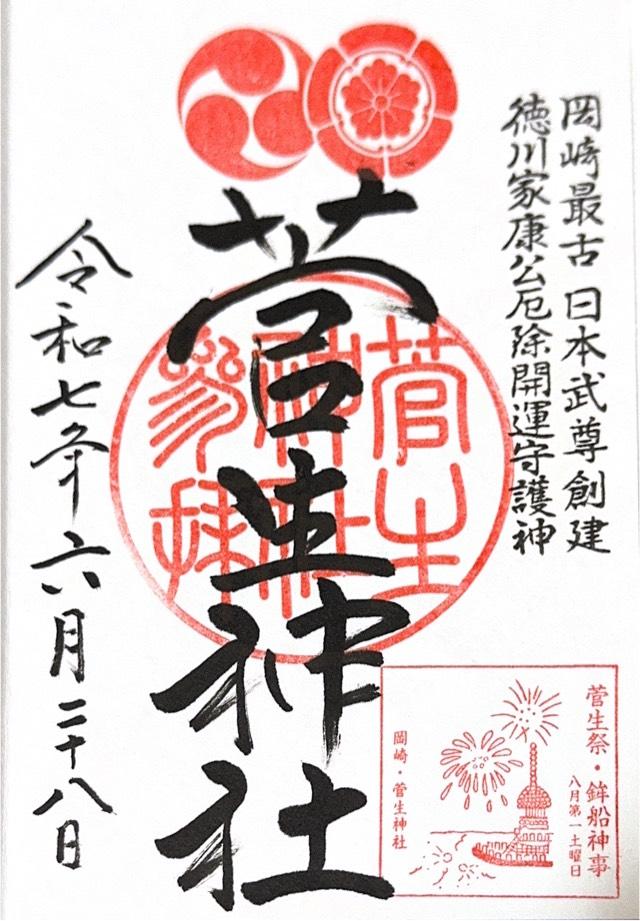 岡崎最古 日本武尊創建
徳川家康公厄除開運守護神
菅生神社
菅生
神社
参拝
令和七年六月二十八日
菅生祭・鉾船神事
八月第一土曜日
岡崎・菅生神社